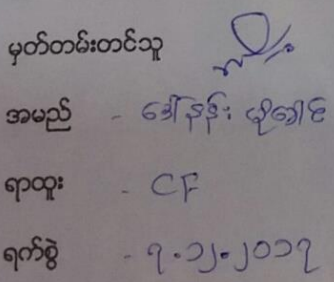 မှတ်တမ်းတင်သူ
အမည် - ဒေါ်နန်း
ရာထူး - CF
ရက်စွဲ - ၇.၁၂.၂၀၁၇